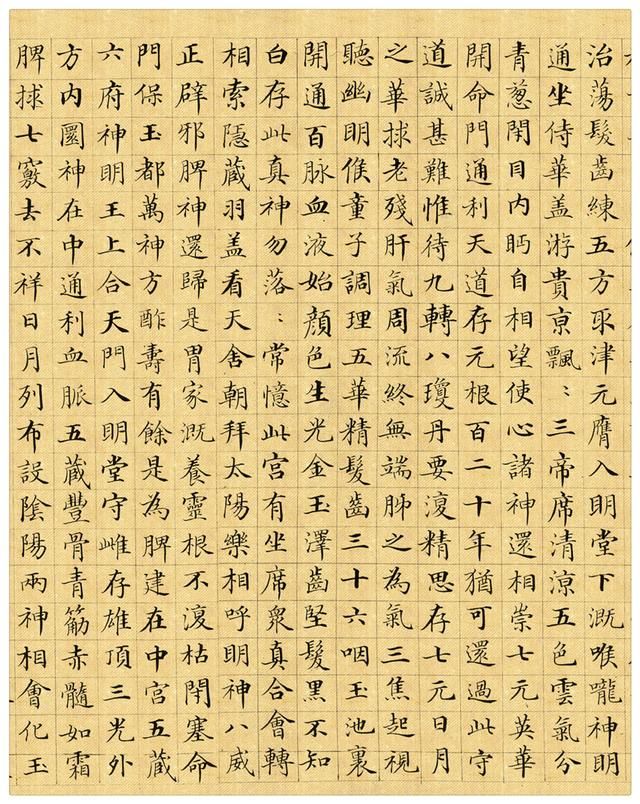 治蕩髮齒練五方取津元膺入明堂下溉喉嚨神明
通坐侍華盖游貴京飄〻三帝席清涼五色雲氣分
青蔥閉目內眄自相望使心諸神還相崇七元英華
開命門通利天道存元根百二十年猶可還過此守
道誠甚難惟待九轉八瓊丹要復精思存七元日月
之華捄老殘肝氣周流終無端肺之為氣三焦起視
聽幽明候童子調理五華精髮齒三十六咽玉池裏
開通百脉血液始顏色生光金玉澤齒堅髮黑不知
白存此真神勿落〻常憶此宮有坐席衆真合會轉
相索隱蔵羽盖看天舍朝拜太陽樂相呼明神八威
正辟邪脾神還歸是胃家溉養靈根不復枯閉塞命
門保玉都萬神方酢壽有餘是為脾建在中宮五蔵
六府神明王上合天門入明堂守雌存雄頂三光外
方內圓神在中通利血脈五蔵豐骨青筋赤髓如霜
脾捄七竅去不祥日月列布設陰陽兩神相會化玉